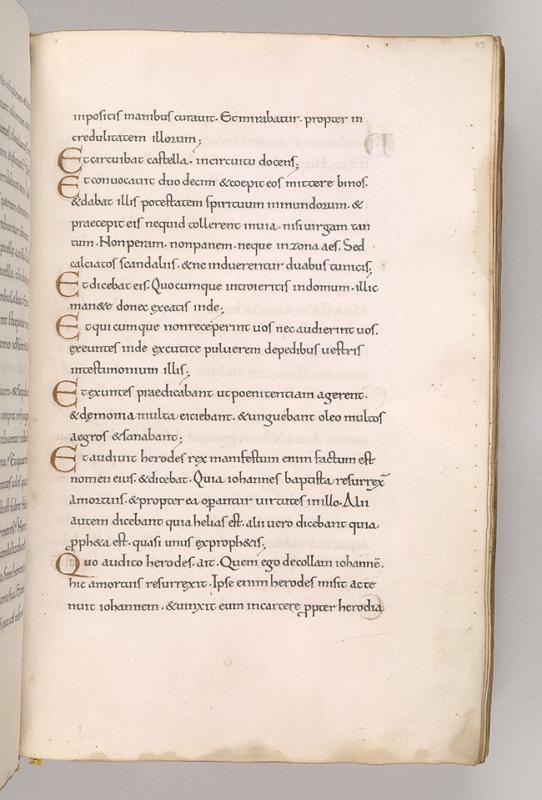 inpositis manibus curauit. Et mirabatur. propter in
credulitatem illorum;
Et circuibat castella. incircuitu docens;
Et conuocauit duo decim & coepit eos mittere binos.
& dabat illis potestatem spirituum inmundorum. &
praecepit eis nequid tollerent inuia. nisi uirgam tan
tum. Non peram. non panem. neque in zona aes. Sed
calciatos scandaliis. & ne induerentur duabus tunicis;
Et dicebat eis. Quocumque introieritis indomum. illic
man&e donec exeatis inde;
Et qui cumque nonreceperint uos nec audierint uos.
exeuntes inde excutite puluerem depedibus uestris
intestimonium illis;
Et exeuntes praedicabant ut poenitentiam agerent.
& demonia multa eiciebant. & unguebant oleo multos
aegros & sanabant;
Et audiuit herodes rex manifestum enim factum est
nomen eius. & dicebat. Quia iohannes baptista resurrex̄
amortuis. & propter ea operantur uirtutes inillo. Alii
autem dicebant quia helias est. alii uero dicebant quia
ꝓph&a est. quasi unus exproph&is;
Quo audito herodes. ait. Quem ego decollaui iohannē.
hic amortuis resurrexit. Ipse enim herodes misit acte
nuit iohannem. & uinxit eum incarcere ꝓpter herodia